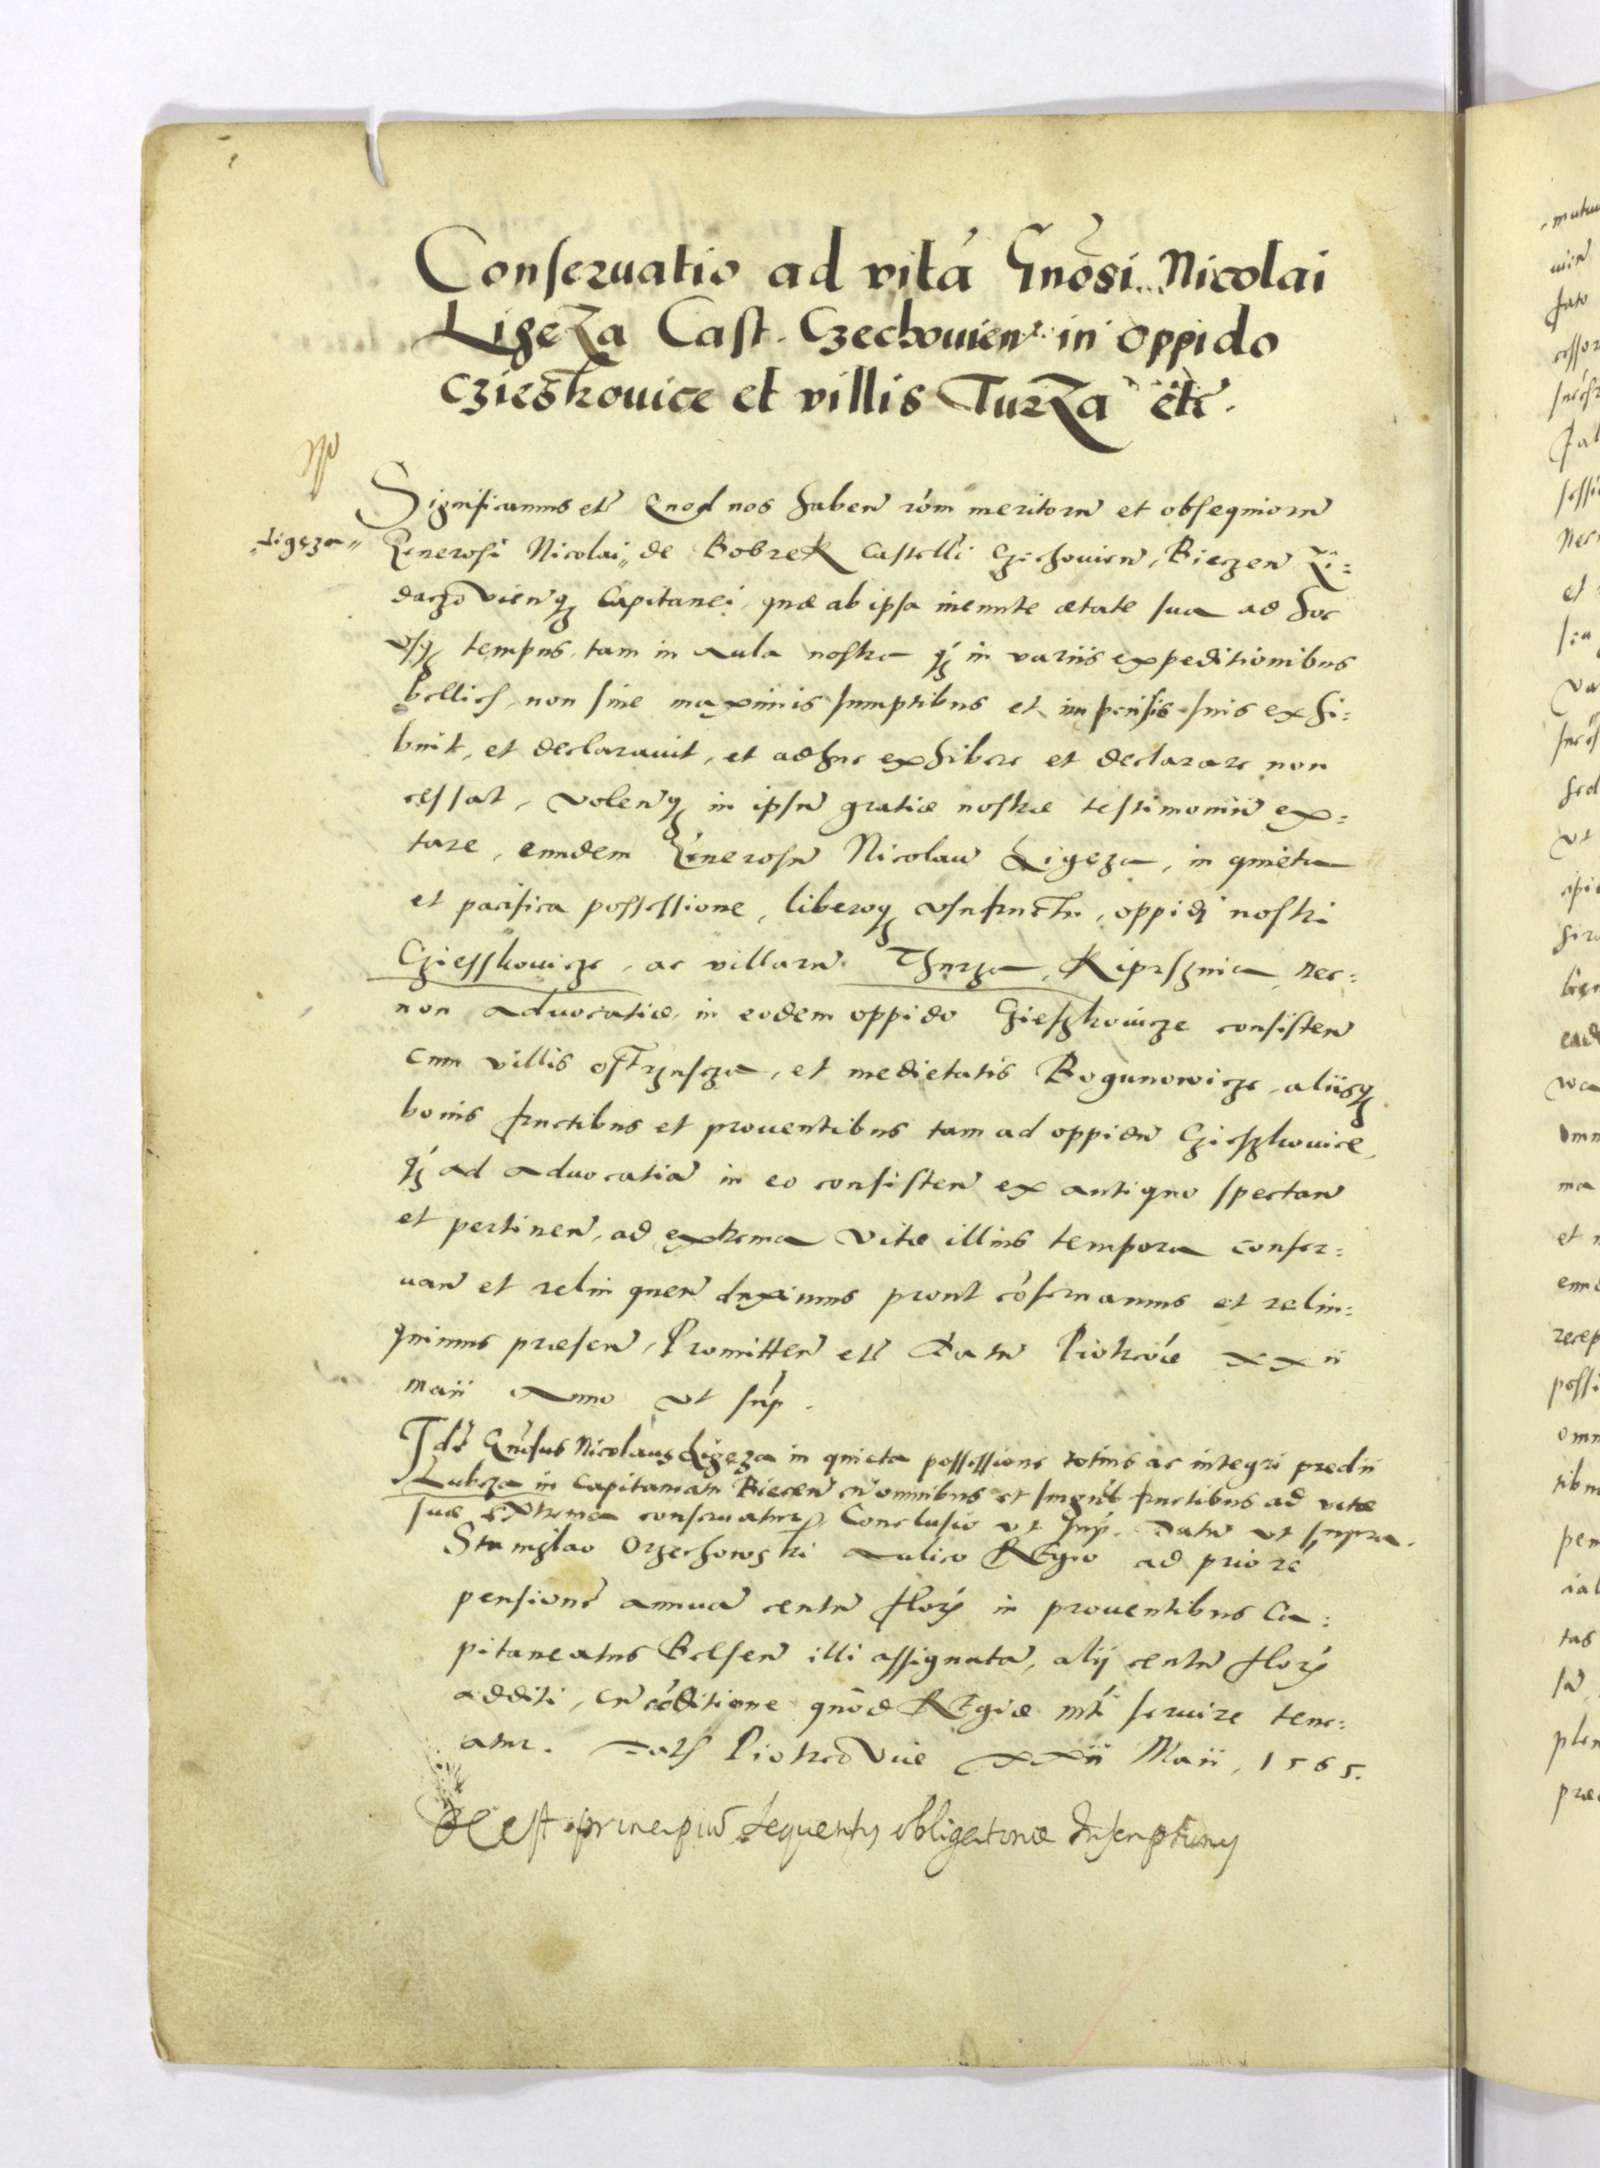 Conseruatio ad vitā Gnosi Nicolai
Ligęza Cast. Czechouien in oppido
Cziesskouice et villis Turza etc.
Significamus etc Quod nos haben rōm meritorū et obsequiorū
„Ligęza„
Generosi Nicolai„ de Bobrek Castellī Czechouien, Bieczen Zi=
daczoVienq Capitanei, quæ ab ipsa ineunte ætate sua ad hoc
vsq tempus, tam in Aula nostra q in variis expeditionibus
bellicis, non sine maximis sumptibus et impensis suis exhi=
buit, et declarauit, et adhuc exhibere et declarare non
cessat, Volenq in ipsū gratiæ nostræ testimoniū ex=
tare, eundem Generosū Nicolaū Ligęza, in quieta
et pacifica possessione, liberoq vsufructu, oppidi nostri
Cziesskouicze, ac villarū Thurza, Kipssznia, nec=
non Aduocatiæ, in eodem oppido Czieszkouicze consisten
cum villis ostrzussza, et medietatis Bogunowicze, aliisq
bonis fructibus et prouentibus tam ad oppidū Czieszkouice,
q ad Aduocatiā in eo consisten ex antiquo spectan
et pertinen, ad extrema vitæ illius tempora conser=
uan et relinquen duximus prout cōseruamus et relin=
quimus præsen, Promitten etc Datū Piotrcoiæ xxii
maii Anno vt sup.
Idē Gnosus Nicolaus Ligęza in quieta possessione totius ac integri predii
Lubcza in Capitaneatu Biecen cū omnibus et singulis fructibus ad vitæ
suæ extrema conseruatur, Conclusio vt sup. Datū vt supra.
Stanislao Orzechowski Aulico Regio ad priorē
pensionē annuā centū flor in prouentibus Ca=
pitaneatus Belsen illi assignatā, alij centū flor
additi, cū cōditione quod Regiæ mti seruire tene=
atur. Dat Piotrcouiæ xxii Maii, 1565.
est principiū sequentis obligatoriæ Inscriptionis